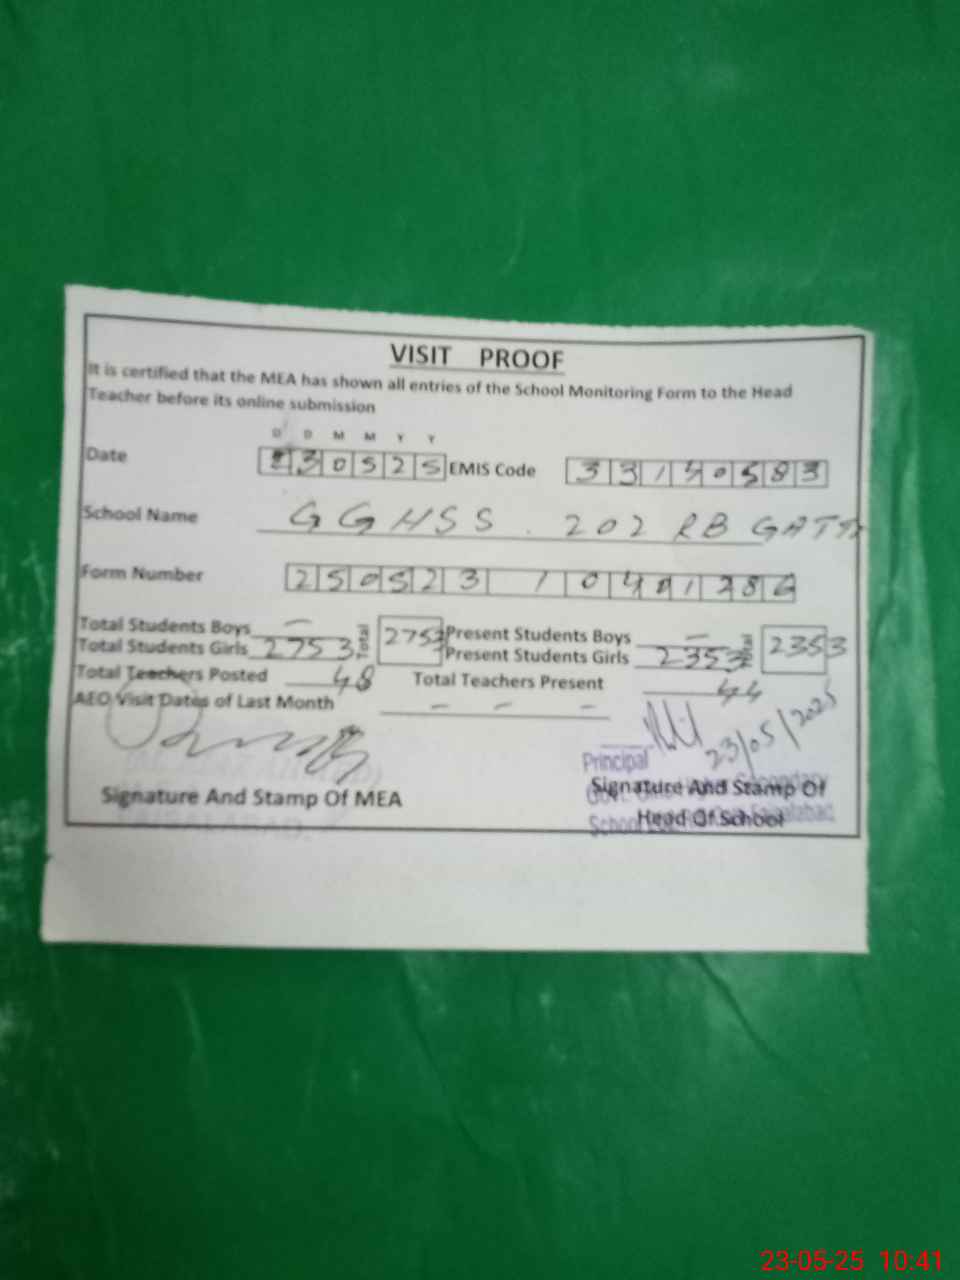 VISIT PROOF
It is certified that the MEA has shown all entries of the School Monitoring Form to the Head
Teacher before its online submission
D D M M Y Y
Date 230525 EMIS Code 33140583
School Name GGHSS. 202 RB GATTI
Form Number 250523 1
Total Students Boys — Total 2753 Present Students Boys — Total 2353
Total Students Girls 2753 Present Students Girls 2353
Total Teachers Posted 48 Total Teachers Present 44
AEO Visit Dates of Last Month — — —
23/05/2025
Principal
Signature And Stamp Of MEA Signature And Stamp Of
Head Of School
23-05-25 10:41